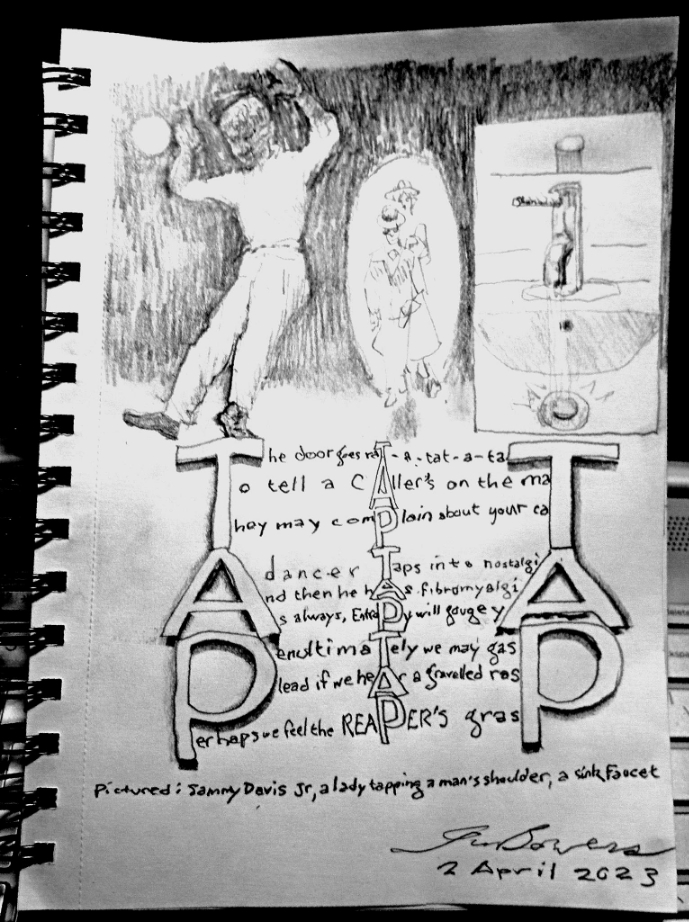 The door goes rat-a-tat-a-tat
To tell a Caller's on the mat
They may complain about your cat
A dancer Taps into nostalgia
And then he hAs fibromyalgia
As always, EntroPy will gouge ya
PenultimaTely we may gasp
Plead if we heAr a gravelled rasp
Perhaps we feel the REAPER'S grasp
Pictured: Sammy Davis Jr, a lady tapping a man's shoulder, a sink faucet
2 April 2023